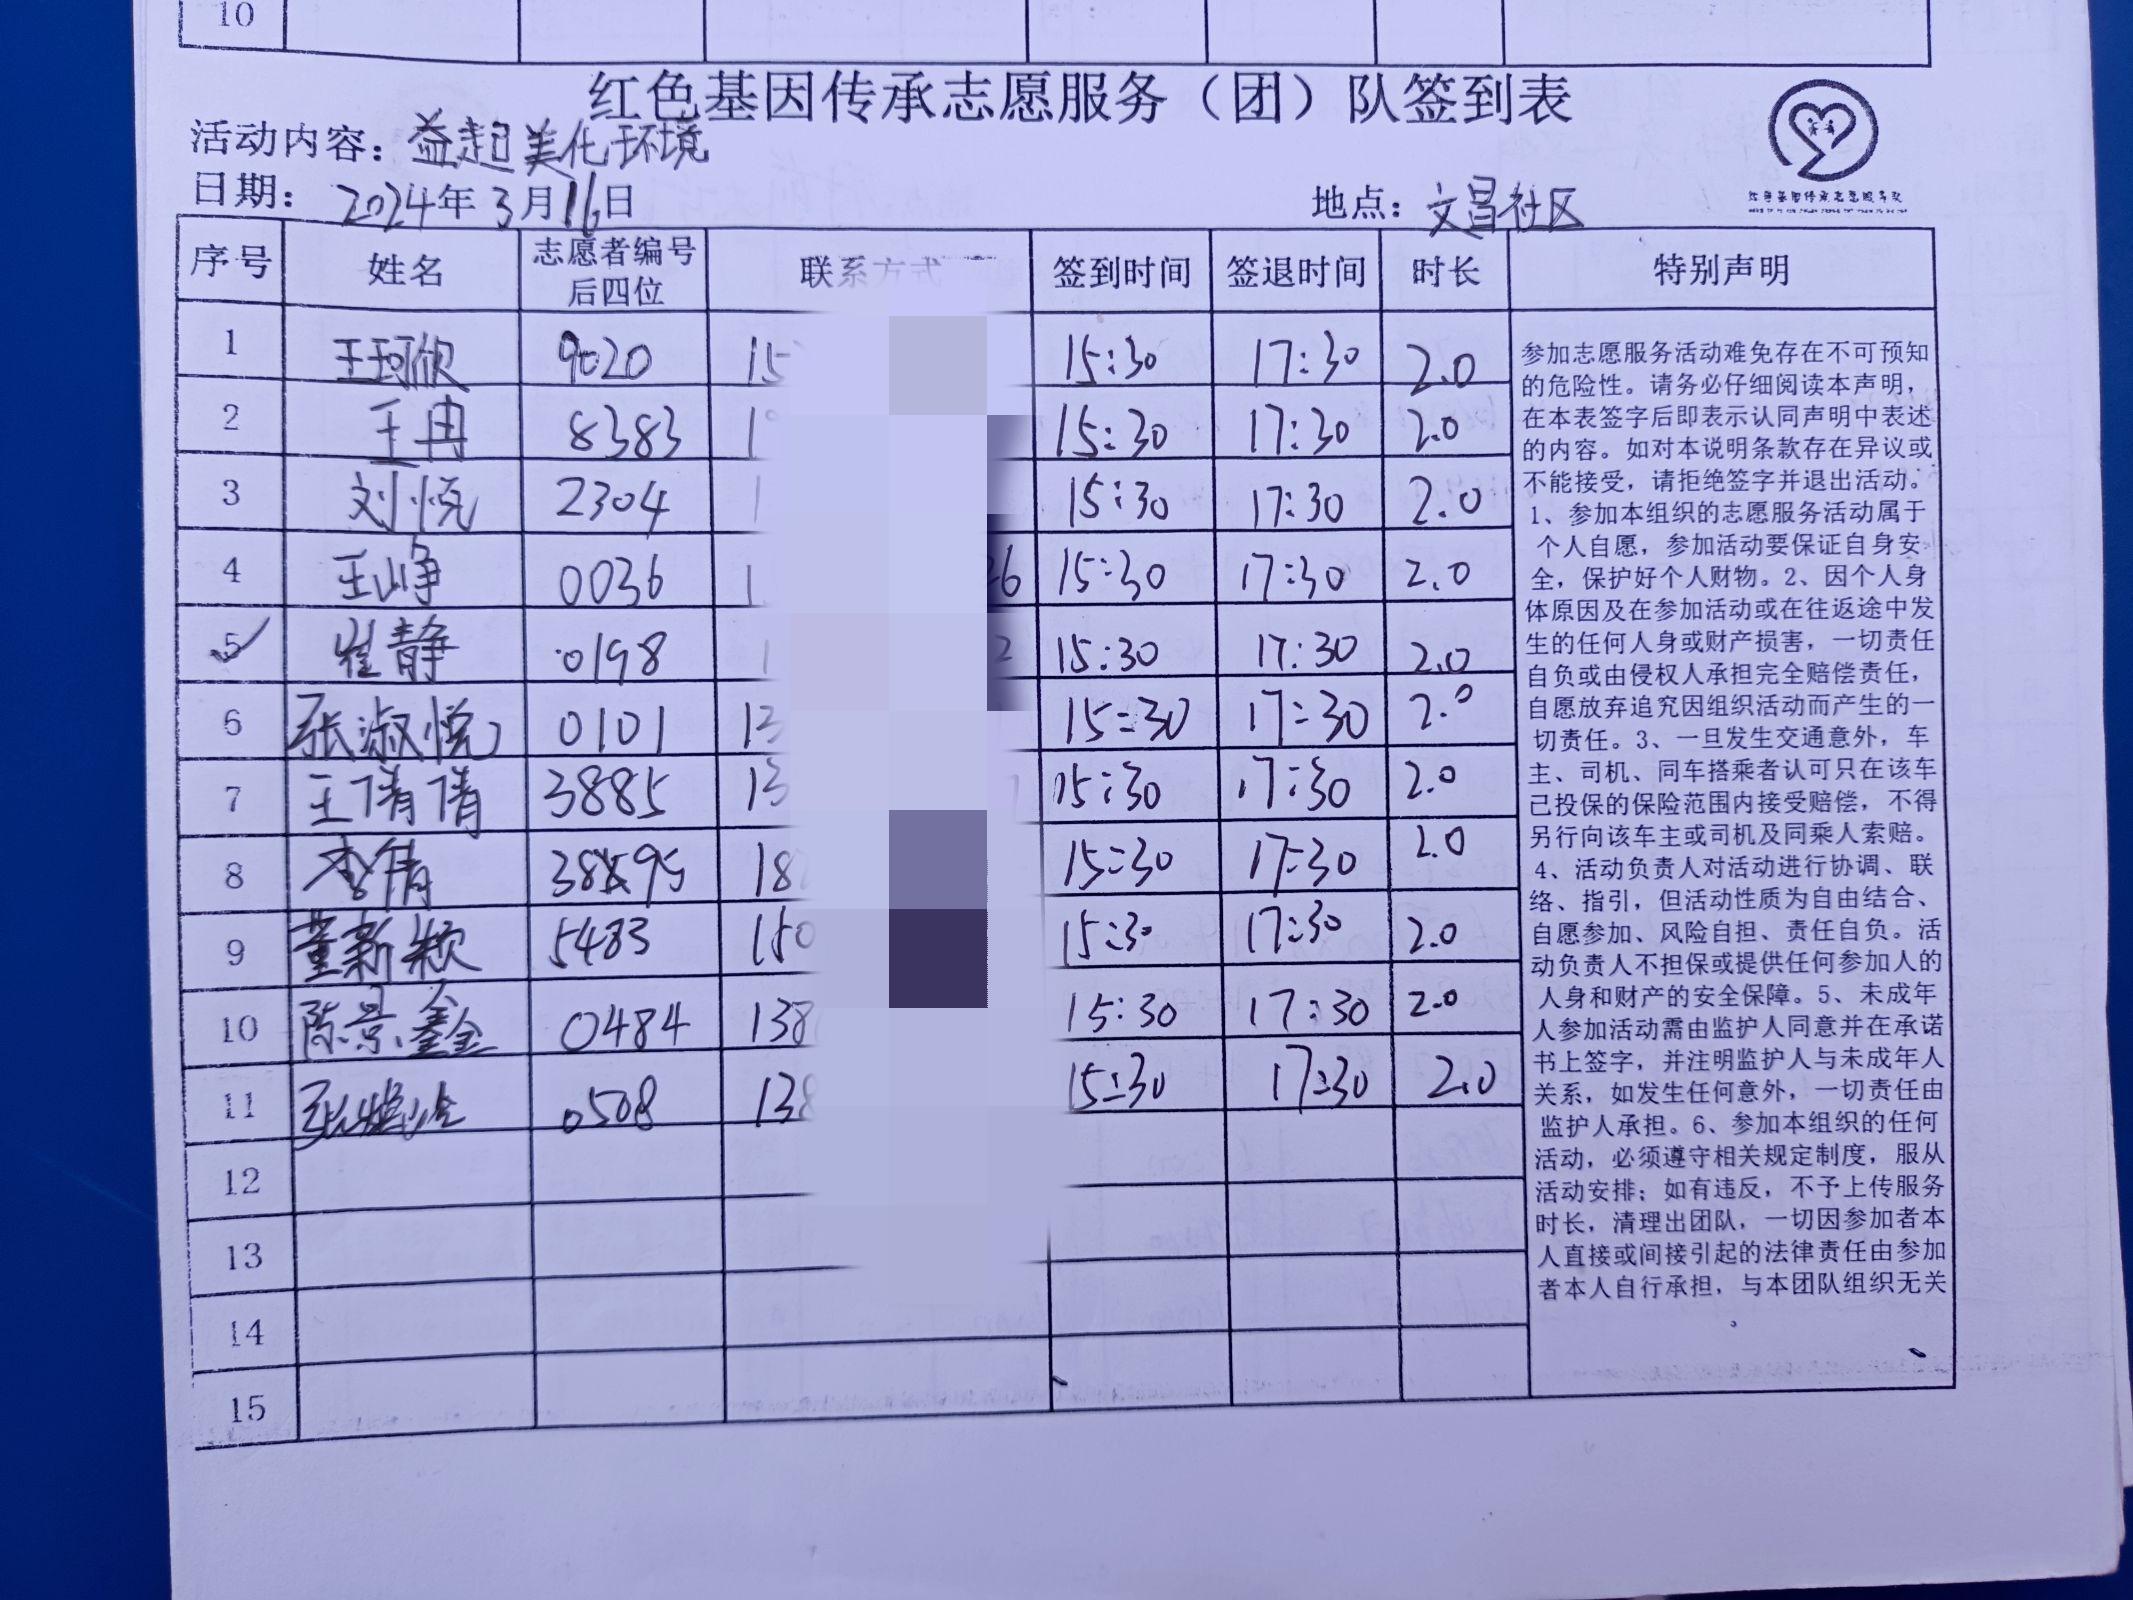 10
红色基因传承志愿服务（团）队签到表
活动内容：益起美化环境
日期：2024年3月16日 地点：文昌社区
红色基因传承志愿服务队
序号 姓名 志愿者编号后四位 联系方式 签到时间 签退时间 时长 特别声明
1 王珂欣 9020 15 15:30 17:30 2.0
2 王冉 8383 1 15:30 17:30 2.0
3 刘悦 2304 1 15:30 17:30 2.0
4 王峥 0036 1 26 15:30 17:30 2.0
5 崔静 0198 1 2 15:30 17:30 2.0
6 张淑悦 0101 13 15:30 17:30 2.0
7 王倩倩 3885 13 15:30 17:30 2.0
8 李倩 18 15:30 17:30 2.0
9 董新颖 5483 150 15:30 17:30 2.0
10 陈景鑫 0484 138 15:30 17:30 2.0
11 0508 138 15:30 17:30 2.0
12
13
14
15
参加志愿服务活动难免存在不可预知
的危险性。请务必仔细阅读本声明，
在本表签字后即表示认同声明中表述
的内容。如对本说明条款存在异议或
不能接受，请拒绝签字并退出活动。
1、参加本组织的志愿服务活动属于
个人自愿，参加活动要保证自身安
全，保护好个人财物。2、因个人身
体原因及在参加活动或在往返途中发
生的任何人身或财产损害，一切责任
自负或由侵权人承担完全赔偿责任，
自愿放弃追究因组织活动而产生的一
切责任。3、一旦发生交通意外，车
主、司机、同车搭乘者认可只在该车
己投保的保险范围内接受赔偿，不得
另行向该车主或司机及同乘人索赔。
4、活动负责人对活动进行协调、联
络、指引，但活动性质为自由结合、
自愿参加、风险自担、责任自负。活
动负责人不担保或提供任何参加人的
人身和财产的安全保障。5、未成年
人参加活动需由监护人同意并在承诺
书上签字，并注明监护人与未成年人
关系，如发生任何意外，一切责任由
监护人承担。6、参加本组织的任何
活动，必须遵守相关规定制度，服从
活动安排；如有违反，不予上传服务
时长，清理出团队，一切因参加者本
人直接或间接引起的法律责任由参加
者本人自行承担，与本团队组织无关
。